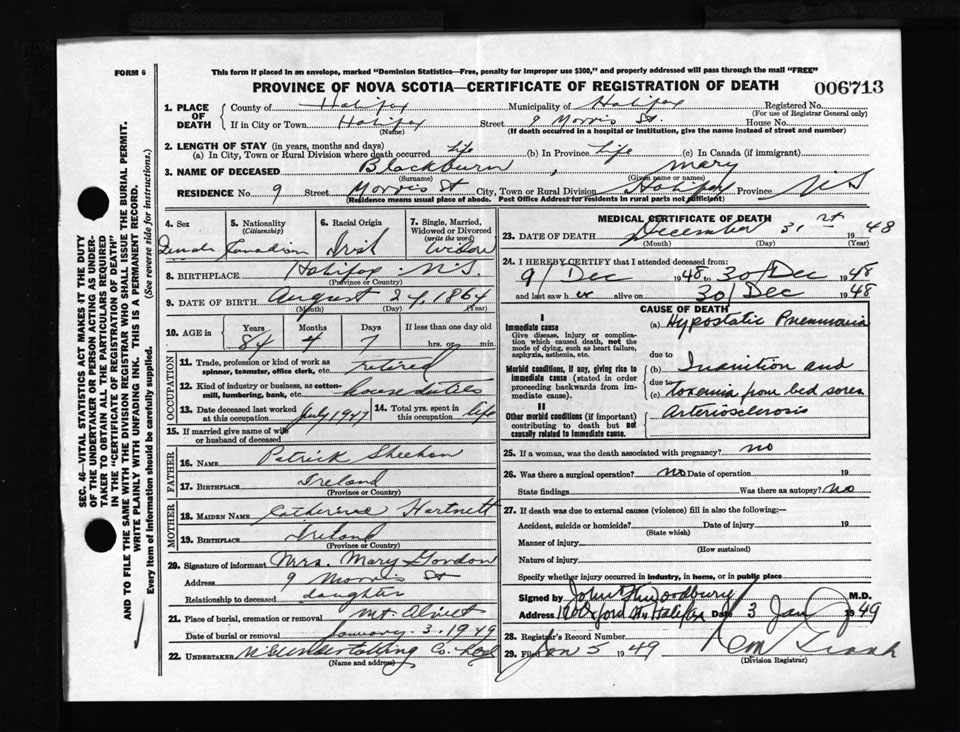 FORM 6
This form if placed in an envelope, marked "Dominion Statistics—Free, penalty for improper use $300," and properly addressed will pass through the mail "FREE"
PROVINCE OF NOVA SCOTIA—CERTIFICATE OF REGISTRATION OF DEATH 006713
1. PLACE OF DEATH
County of Halifax Municipality of Halifax Registered No.
(For use of Registrar General only)
If in City or Town Halifax Street 9 Morris St. House No.
(Name) (If death occurred in a hospital or institution, give the name instead of street and number)
2. LENGTH OF STAY (in years, months and days)
(a) In City, Town or Rural Division where death occurred Life (b) In Province Life (c) In Canada (if immigrant)
3. NAME OF DECEASED Blackburn, Mary
(Surname) (Given name or names)
RESIDENCE No. 9 Street Morris St City, Town or Rural Division Halifax Province N S
(Residence means usual place of abode. Post Office Address for residents in rural parts not sufficient)
4. Sex Female
5. Nationality (Citizenship) Canadian
6. Racial Origin Irish
7. Single, Married, Widowed or Divorced (write the word) Widow
8. BIRTHPLACE Halifax N.S.
(Province or Country)
9. DATE OF BIRTH August 24, 1864
(Month) (Day) (Year)
10. AGE in Years Months Days If less than one day old
84 4 7 hrs. or min.
OCCUPATION
11. Trade, profession or kind of work as spinner, teamster, office clerk, etc. retired
12. Kind of industry or business, as cotton-mill, lumbering, bank, etc. house duties
13. Date deceased last worked at this occupation July 1947
14. Total yrs. spent in this occupation life
15. If married give name of wife or husband of deceased
FATHER
16. NAME Patrick Sheehan
17. BIRTHPLACE Ireland
(Province or Country)
MOTHER
18. MAIDEN NAME Catherine Hartnett
19. BIRTHPLACE Ireland
(Province or Country)
20. Signature of informant Mrs. Mary Gordon
Address 9 Morris St
Relationship to deceased daughter
21. Place of burial, cremation or removal Mt. Olivet
Date of burial or removal January. 3. 1949
22. UNDERTAKER N S Undertaking Co.
(Name and address)
MEDICAL CERTIFICATE OF DEATH
23. DATE OF DEATH December 31st 1948
(Month) (Day) (Year)
24. I HEREBY CERTIFY that I attended deceased from:
9/Dec 1948 to 30/Dec 1948
and last saw her alive on 30/Dec 1948
CAUSE OF DEATH
I
Immediate cause
Give disease, injury or complication which caused death, not the mode of dying, such as heart failure, asphyxia, asthenia, etc.
(a) Hypostatic Pneumonia
due to
Morbid conditions, if any, giving rise to immediate cause (stated in order proceeding backwards from immediate cause).
(b) Inanition and
due to
(c) toxemia from bed sores
II
Other morbid conditions (if important) contributing to death but not causally related to immediate cause.
Arteriosclerosis
25. If a woman, was the death associated with pregnancy? no
26. Was there a surgical operation? no Date of operation 19
State findings Was there an autopsy? no
27. If death was due to external causes (violence) fill in also the following:—
Accident, suicide or homicide? Date of injury 19
(State which)
Manner of injury
(How sustained)
Nature of injury
Specify whether injury occurred in industry, in home, or in public place
Signed by John Woodbury M.D.
Address Oxford St Halifax Date 3 Jan 1949
28. Registrar's Record Number
29. Filed Jan 5 1949
(Division Registrar)
SEC. 46—VITAL STATISTICS ACT MAKES IT THE DUTY OF THE UNDERTAKER OR PERSON ACTING AS UNDERTAKER TO OBTAIN ALL THE PARTICULARS REQUIRED IN THE "CERTIFICATE OF REGISTRATION OF DEATH" AND TO FILE THE SAME WITH THE DIVISION REGISTRAR WHO SHALL ISSUE THE BURIAL PERMIT.
WRITE PLAINLY WITH UNFADING INK. THIS IS A PERMANENT RECORD.
Every item of information should be carefully supplied. (See reverse side for instructions.)